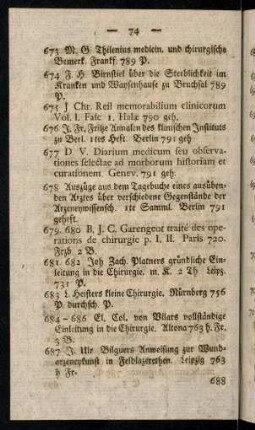 — 74 —
673 M. G. Thilenius medicin. und chirurgische
Bemerk. Frankf. 789 P.
674 F. H. Birnstiel über die Sterblichkeit im
Kranken und Waysenhause zu Bruchsal 789
P.
675 J Chr. Reil memorabilium clinicorum
Vol. I. Fasc 1. Halæ 790 geh.
676 J. Fr. Fritze Annalen des klinischen Instituts
zu Berl. 1tes Heft. Berlin 791 geh
677 D V. Diarium medicum seu observa-
tiones selectae ad morborum historiam et
curationem. Genev. 791 geh.
678 Auszüge aus dem Tagebuche eines ausüben-
den Arztes über verschiedene Gegenstände der
Arzeneywissensch. 1te Samml. Berlin 791
geheft.
679. 680 B. J. C. Garengeot traité des ope-
rations de chirurgie p. I. II. Paris 720.
Frzb. 2 B.
681. 682 Joh Zach. Platners gründliche Ein-
leitung in die Chirurgie. m. K. 2 Th Leipz.
731 P.
683 L. Heisters kleine Chirurgie. Nürnberg 756
P. durchsch. P.
684 — 686 El. Col. von Vilars vollständige
Einleitung in die Chirurgie. Altona 763 h. Fr.
3 B.
687 J. Ulr. Bilguers Anweisung zur Wund-
arzeneykunst in Feldlazarethen. Leipzig 763
h Fr.
688